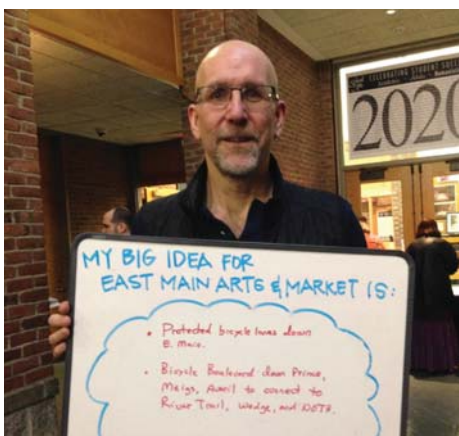 CELEBRATING STUDENT SUCCESS
2020
MY BIG IDEA FOR
EAST MAIN ARTS & MARKET IS:
• Protected bicycle lanes down
E. Main.
• Bicycle Boulevard down Prince,
Meigs, Averill to connect to
River Trail, Wedge, and NOTA.